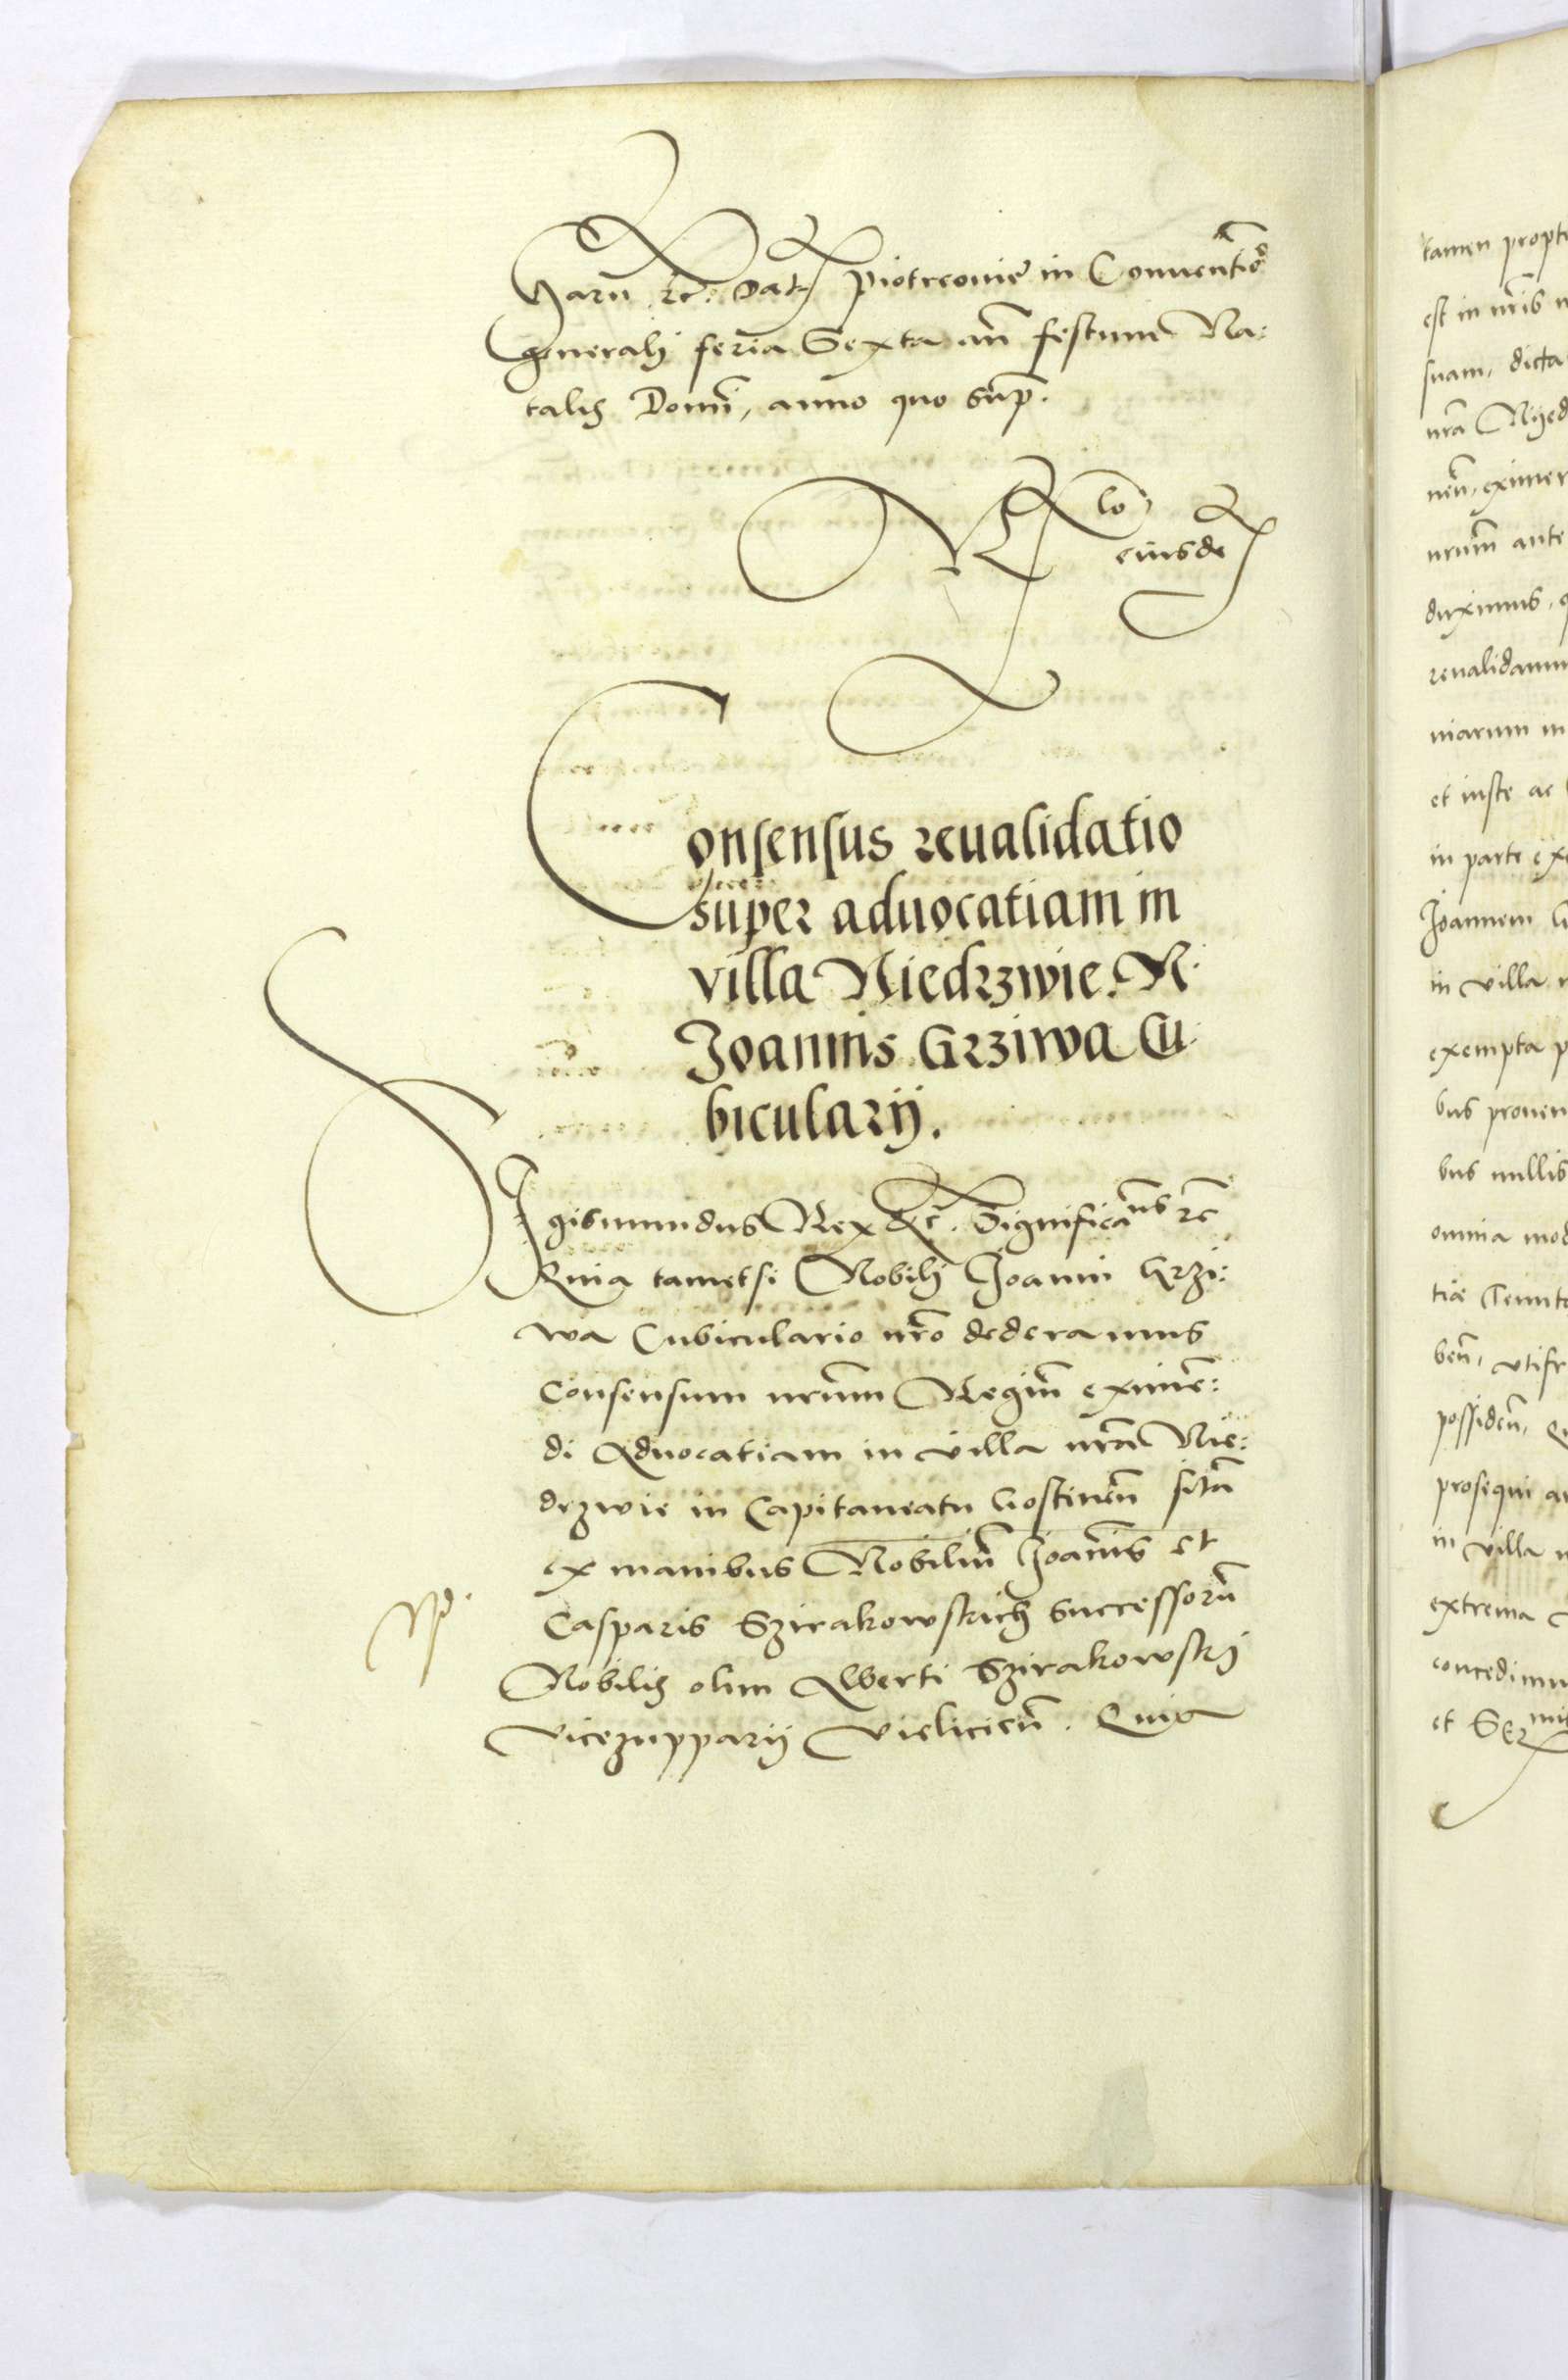 Harũ &c. Dat. Piotrcouie in Conuentiõe
generali feria Sexta añ festum Na:
talis Domi, anno quo sup.
Rlo
eiusde
Consensus reualidatio
super aduocatiam in
villa Niedrzwie. N.
Joannis Grziwa Cu
bicularij.
Sigismundus Rex &c. Significamus &c
Quia tametsi Nobili Joanni Grzi:
wa Cubiculario nr̃o dederamus
Consensum nrũm Regiũm eximẽ:
di Aduocatiam in villa nrã Nie:
drzwie in Capitaneatu Gostineñ sitã
ex manibus Nobiliũm Joañis et
Casparis Szirakowskich successorũ
Nobilis olim Alberti Szirakowski
vicezupparij Vielicieñ. Quia
tamen propte
est in nr̃is
suam, dicta
nrã Nyed
neñ, eximer
nrũm ante
duximus,
reualidamu
niarum in
et iuste ac
in parte ex
Joannem G
in villa
exempta p
bus prouen
bus nullis
omnia mod
tiæ Tenute
beñ, vtifr
possideñ,
prosequi
in villa
extrema
concedimu
et Ser